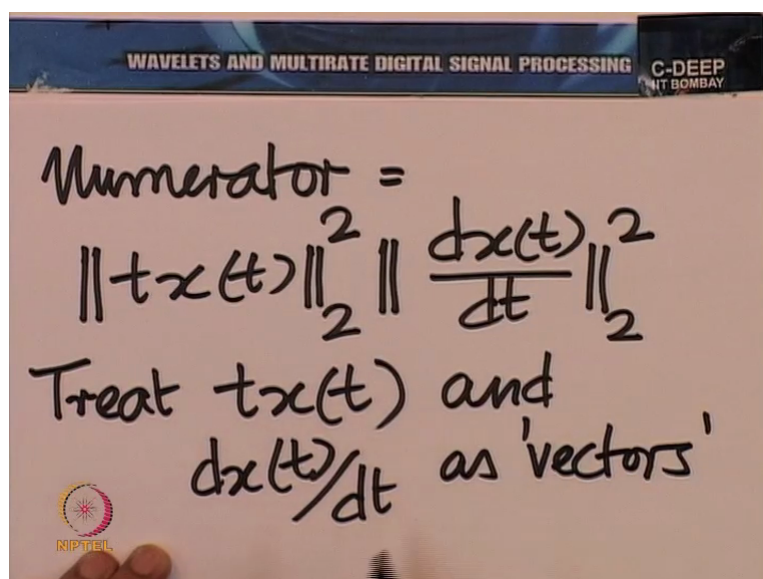 WAVELETS AND MULTIRATE DIGITAL SIGNAL PROCESSING
C-DEEP
IIT BOMBAY
Numerator =
||tx(t)||₂² ||dx(t)/dt||₂²
Treat tx(t) and
dx(t)/dt as 'vectors'
NPTEL